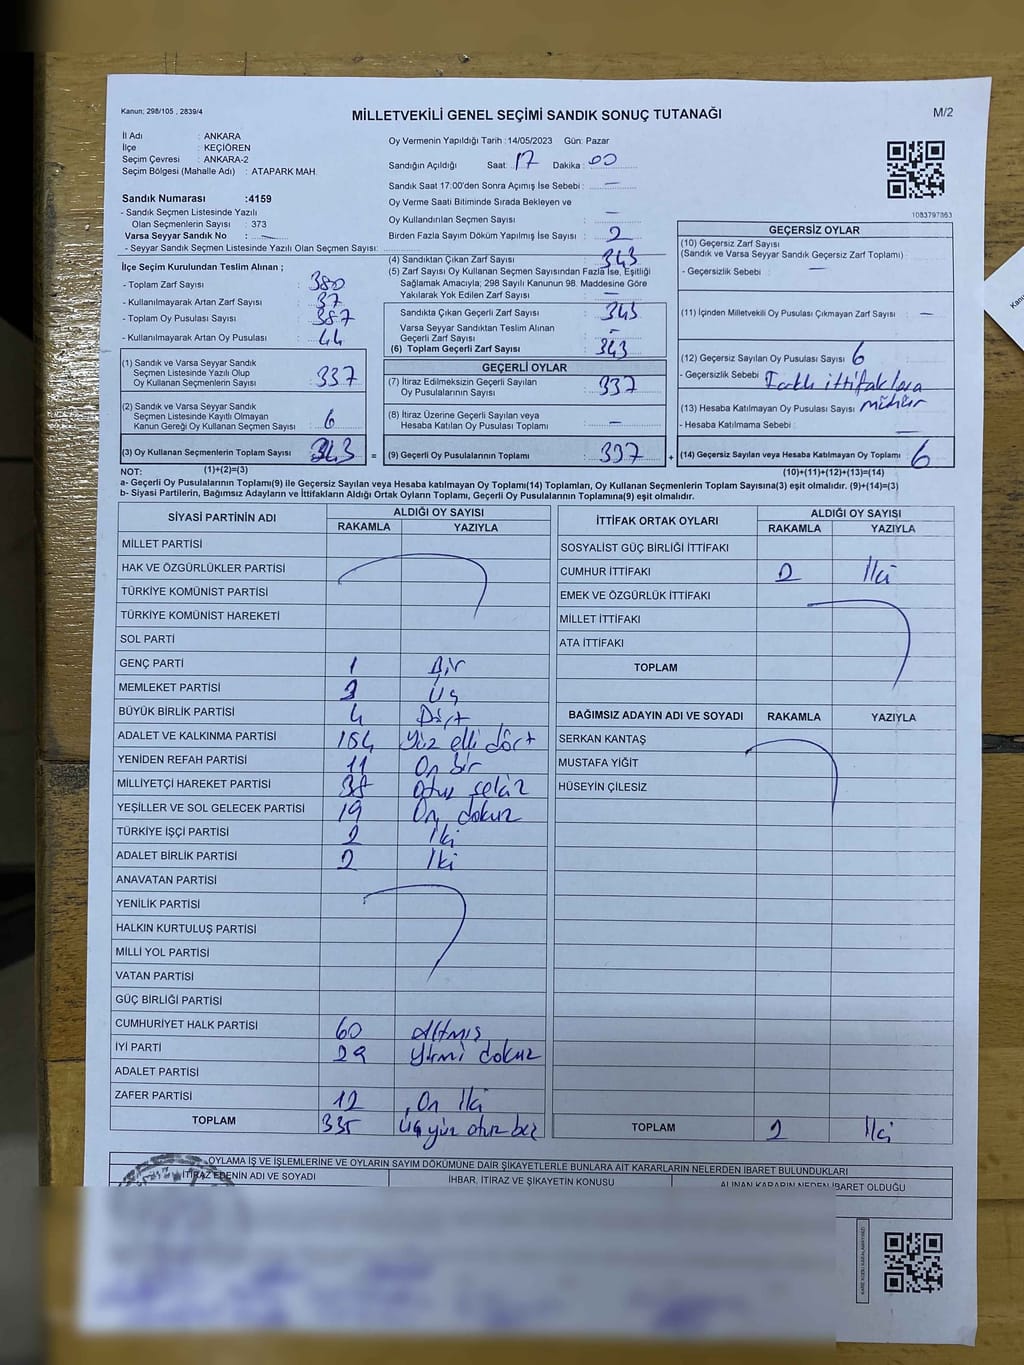 Kanun; 298/105 , 2839/4
MİLLETVEKİLİ GENEL SEÇİMİ SANDIK SONUÇ TUTANAĞI
M/2
İl Adı : ANKARA
İlçe : KEÇİÖREN
Seçim Çevresi : ANKARA-2
Seçim Bölgesi (Mahalle Adı) : ATAPARK MAH.
Sandık Numarası :4159
- Sandık Seçmen Listesinde Yazılı
Olan Seçmenlerin Sayısı : 373
Varsa Seyyar Sandık No : —
- Seyyar Sandık Seçmen Listesinde Yazılı Olan Seçmen Sayısı:
Oy Vermenin Yapıldığı Tarih :14/05/2023 Gün: Pazar
Sandığın Açıldığı Saat: 17 Dakika: 00
Sandık Saat 17:00'den Sonra Açımış İse Sebebi : —
Oy Verme Saati Bitiminde Sırada Bekleyen ve
Oy Kullandırılan Seçmen Sayısı : —
Birden Fazla Sayım Döküm Yapılmış İse Sayısı : 2
1083797863
İlçe Seçim Kurulundan Teslim Alınan ;
- Toplam Zarf Sayısı : 380
- Kullanılmayarak Artan Zarf Sayısı : 37
- Toplam Oy Pusulası Sayısı : 387
- Kullanılmayarak Artan Oy Pusulası : 44
(1) Sandık ve Varsa Seyyar Sandık
Seçmen Listesinde Yazılı Olup
Oy Kullanan Seçmenlerin Sayısı : 337
(2) Sandık ve Varsa Seyyar Sandık
Seçmen Listesinde Kayıtlı Olmayan
Kanun Gereği Oy Kullanan Seçmen Sayısı : 6
(3) Oy Kullanan Seçmenlerin Toplam Sayısı : 343 =
(4) Sandıktan Çıkan Zarf Sayısı : 343
(5) Zarf Sayısı Oy Kullanan Seçmen Sayısından Fazla İse, Eşitliği
Sağlamak Amacıyla; 298 Sayılı Kanunun 98. Maddesine Göre
Yakılarak Yok Edilen Zarf Sayısı : —
Sandıkta Çıkan Geçerli Zarf Sayısı : 343
Varsa Seyyar Sandıktan Teslim Alınan
Geçerli Zarf Sayısı : —
(6) Toplam Geçerli Zarf Sayısı : 343
GEÇERLİ OYLAR
(7) İtiraz Edilmeksizin Geçerli Sayılan
Oy Pusulalarının Sayısı : 337
(8) İtiraz Üzerine Geçerli Sayılan veya
Hesaba Katılan Oy Pusulası Toplamı : —
(9) Geçerli Oy Pusulalarının Toplamı : 337 +
GEÇERSİZ OYLAR
(10) Geçersiz Zarf Sayısı
(Sandık ve Varsa Seyyar Sandık Geçersiz Zarf Toplamı) :
- Geçersizlik Sebebi : —
(11) İçinden Milletvekili Oy Pusulası Çıkmayan Zarf Sayısı : —
(12) Geçersiz Sayılan Oy Pusulası Sayısı : 6
- Geçersizlik Sebebi : Farklı ittifaklara
mühür
(13) Hesaba Katılmayan Oy Pusulası Sayısı
- Hesaba Katılmama Sebebi : —
(14) Geçersiz Sayılan veya Hesaba Katılmayan Oy Toplamı : 6
NOT: (1)+(2)=(3)
(10)+(11)+(12)+(13)=(14)
a- Geçerli Oy Pusulalarının Toplamı(9) ile Geçersiz Sayılan veya Hesaba katılmayan Oy Toplamı(14) Toplamları, Oy Kullanan Seçmenlerin Toplam Sayısına(3) eşit olmalıdır. (9)+(14)=(3)
b- Siyasi Partilerin, Bağımsız Adayların ve İttifakların Aldığı Ortak Oyların Toplamı, Geçerli Oy Pusulalarının Toplamına(9) eşit olmalıdır.
SİYASİ PARTİNİN ADI ALDIĞI OY SAYISI
RAKAMLA YAZIYLA
MİLLET PARTİSİ
HAK VE ÖZGÜRLÜKLER PARTİSİ
TÜRKİYE KOMÜNİST PARTİSİ
TÜRKİYE KOMÜNİST HAREKETİ
SOL PARTİ
GENÇ PARTİ 1 Bir
MEMLEKET PARTİSİ 3 Üç
BÜYÜK BİRLİK PARTİSİ 4 Dört
ADALET VE KALKINMA PARTİSİ 154 Yüz elli dört
YENİDEN REFAH PARTİSİ 11 On bir
MİLLİYETÇİ HAREKET PARTİSİ 38 Otuz sekiz
YEŞİLLER VE SOL GELECEK PARTİSİ 19 On dokuz
TÜRKİYE İŞÇİ PARTİSİ 2 İki
ADALET BİRLİK PARTİSİ 2 İki
ANAVATAN PARTİSİ
YENİLİK PARTİSİ
HALKIN KURTULUŞ PARTİSİ
MİLLİ YOL PARTİSİ
VATAN PARTİSİ
GÜÇ BİRLİĞİ PARTİSİ
CUMHURİYET HALK PARTİSİ 60 Altmış
İYİ PARTİ 29 Yirmi dokuz
ADALET PARTİSİ
ZAFER PARTİSİ 12 On İki
TOPLAM 335 Üç yüz otuz beş
İTTİFAK ORTAK OYLARI ALDIĞI OY SAYIŞI
RAKAMLA YAZIYLA
SOSYALİST GÜÇ BİRLİĞİ İTTİFAKI
CUMHUR İTTİFAKI 2 İki
EMEK VE ÖZGÜRLÜK İTTİFAKI
MİLLET İTTİFAKI
ATA İTTİFAKI
TOPLAM
BAĞIMSIZ ADAYIN ADI VE SOYADI RAKAMLA YAZIYLA
SERKAN KANTAŞ
MUSTAFA YİĞİT
HÜSEYİN ÇİLESİZ
TOPLAM 2 İki
OYLAMA İŞ VE İŞLEMLERİNE VE OYLARIN SAYIM DÖKÜMÜNE DAİR ŞİKAYETLERLE BUNLARA AİT KARARLARIN NELERDEN İBARET BULUNDUKLARI
İTİRAZ EDENİN ADI VE SOYADI İHBAR, İTİRAZ VE ŞİKAYETİN KONUSU ALINAN KARARIN NEDEN İBARET OLDUĞU